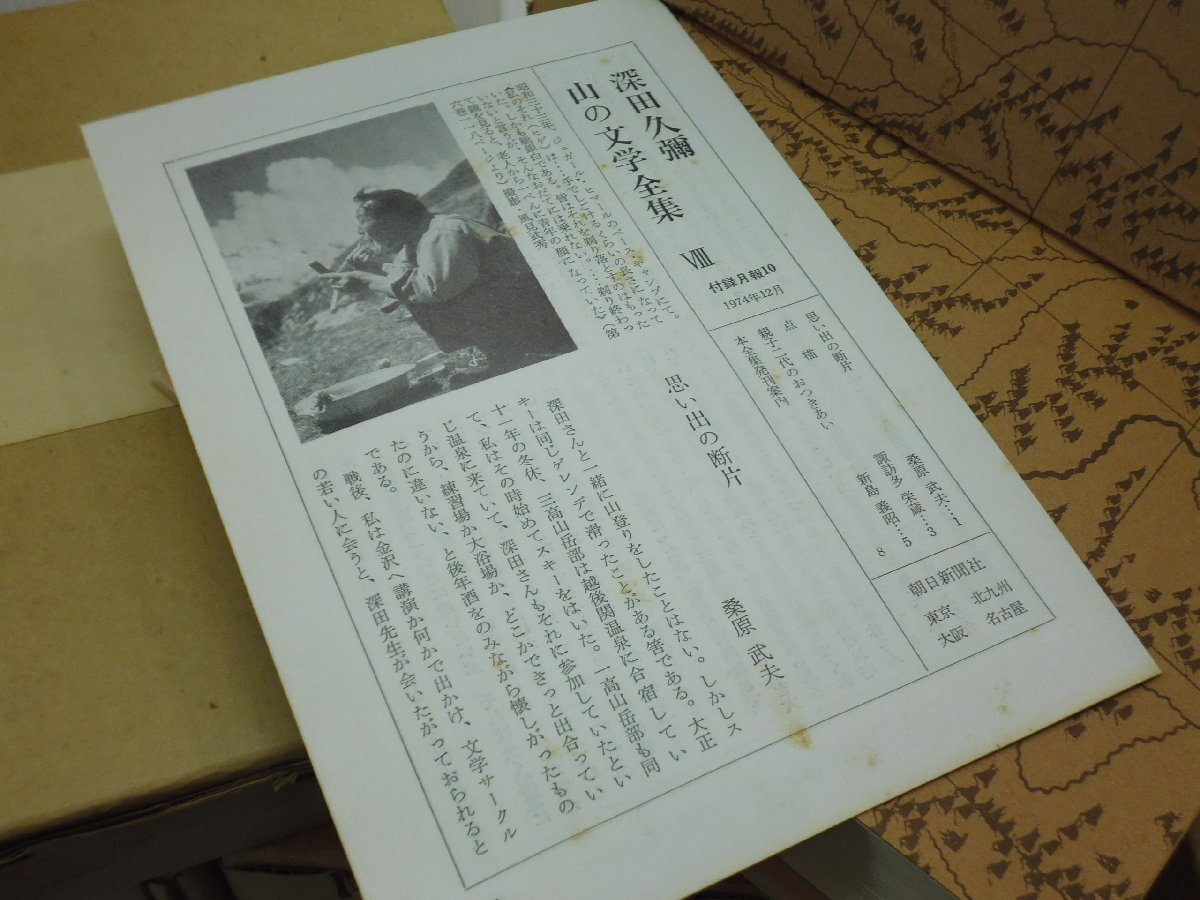 深田久彌
山の文学全集
Ⅷ
付録月報10
1974年12月
思い出の断片 桑原 武夫…1
点描 諏訪多 栄蔵…3
親子二代のおつきあい 新島 義昭…5
本全集発刊案内 8
朝日新聞社
東京 北九州
大阪 名古屋
昭和三十三年、ジュガール・ヒマールのベース・キャンプにて。
六巻二一八ページより) 撮影・風見武秀
思い出の断片
桑原 武夫
深田さんと一緒に山登りをしたことはない。しかしス
キーは同じゲレンデで滑ったことがある筈である。大正
十一年の冬休、三高山岳部は越後関温泉に合宿してい
て、私はその時始めてスキーをはいた。一高山岳部も同
じ温泉に来ていて、深田さんもそれに参加していたとい
うから、練習場か大浴場か、どこかできっと出合ってい
たのに違いない、と後年酒をのみながら懐しがったもの
である。
戦後、私は金沢へ講演か何かで出かけ、文学サークル
の若い人に会うと、深田先生が会いたがっておられると